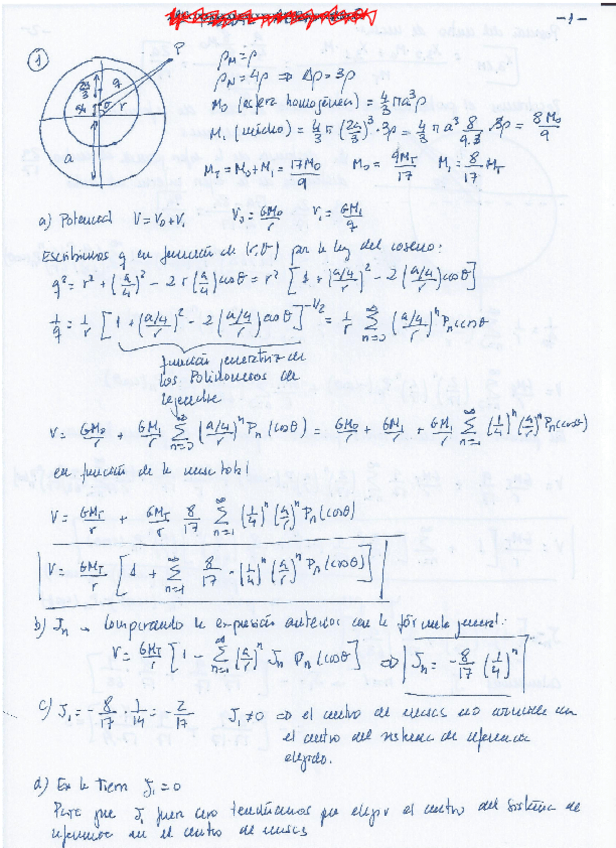 -1-
1
P
2a/3
q
a/4
θ
r
a
ρ_M = ρ
ρ_N = 4ρ ⇒ Δρ = 3ρ
M_0 (esfera homogénea) = 4/3 π a³ρ
M_1 (núcleo) = 4/3 π (2a/3)³ · 3ρ = 4/3 π a³ 8/9.3 · 3ρ = 8M_0/9
M_T = M_0 + M_1 = 17M_0/9   M_0 = 9M_T/17   M_1 = 8/17 · M_T
a) Potencial   V = V_0 + V_1   V_0 = GM_0/r   V_1 = GM_1/q
Escribimos q en función de (r, θ) por la ley del coseno:
q² = r² + (a/4)² - 2r(a/4) cosθ = r² [1 + (a/4/r)² - 2(a/4/r) cosθ]
1/q = 1/r [1 + (a/4/r)² - 2(a/4/r) cosθ]^(-1/2) = 1/r Σ_{n=0}^∞ (a/4/r)^n P_n cosθ
función generatriz de
los Polinomios de
Legendre
V = GM_0/r + GM_1/r Σ_{n=0}^∞ (a/4/r)^n P_n (cosθ) = GM_0/r + GM_1/r + GM_1/r Σ_{n=1}^∞ (1/4)^n (a/r)^n P_n(cosθ)
en función de la masa total
V = GM_T/r + GM_T/r 8/17 Σ_{n=1}^∞ (1/4)^n (a/r)^n P_n (cosθ)
V = GM_T/r [1 + Σ_{n=1}^∞ 8/17 · (1/4)^n (a/r)^n P_n (cosθ)]
b) J_n - Comparando la expresión anterior con la fórmula general:
V = GM_T/r [1 - Σ_{n=1}^∞ (a/r)^n J_n P_n (cosθ)] ⇒ J_n = -8/17 (1/4)^n
c) J_1 = -8/17 · 1/4 = -2/17   J_1 ≠ 0 ⇒ el centro de masas no coincide con
el centro del sistema de referencia
elegido.
d) En la Tierra J_1 = 0
Para que J_1 fuera cero tendríamos que elegir el centro del sistema de
referencia en el centro de masas